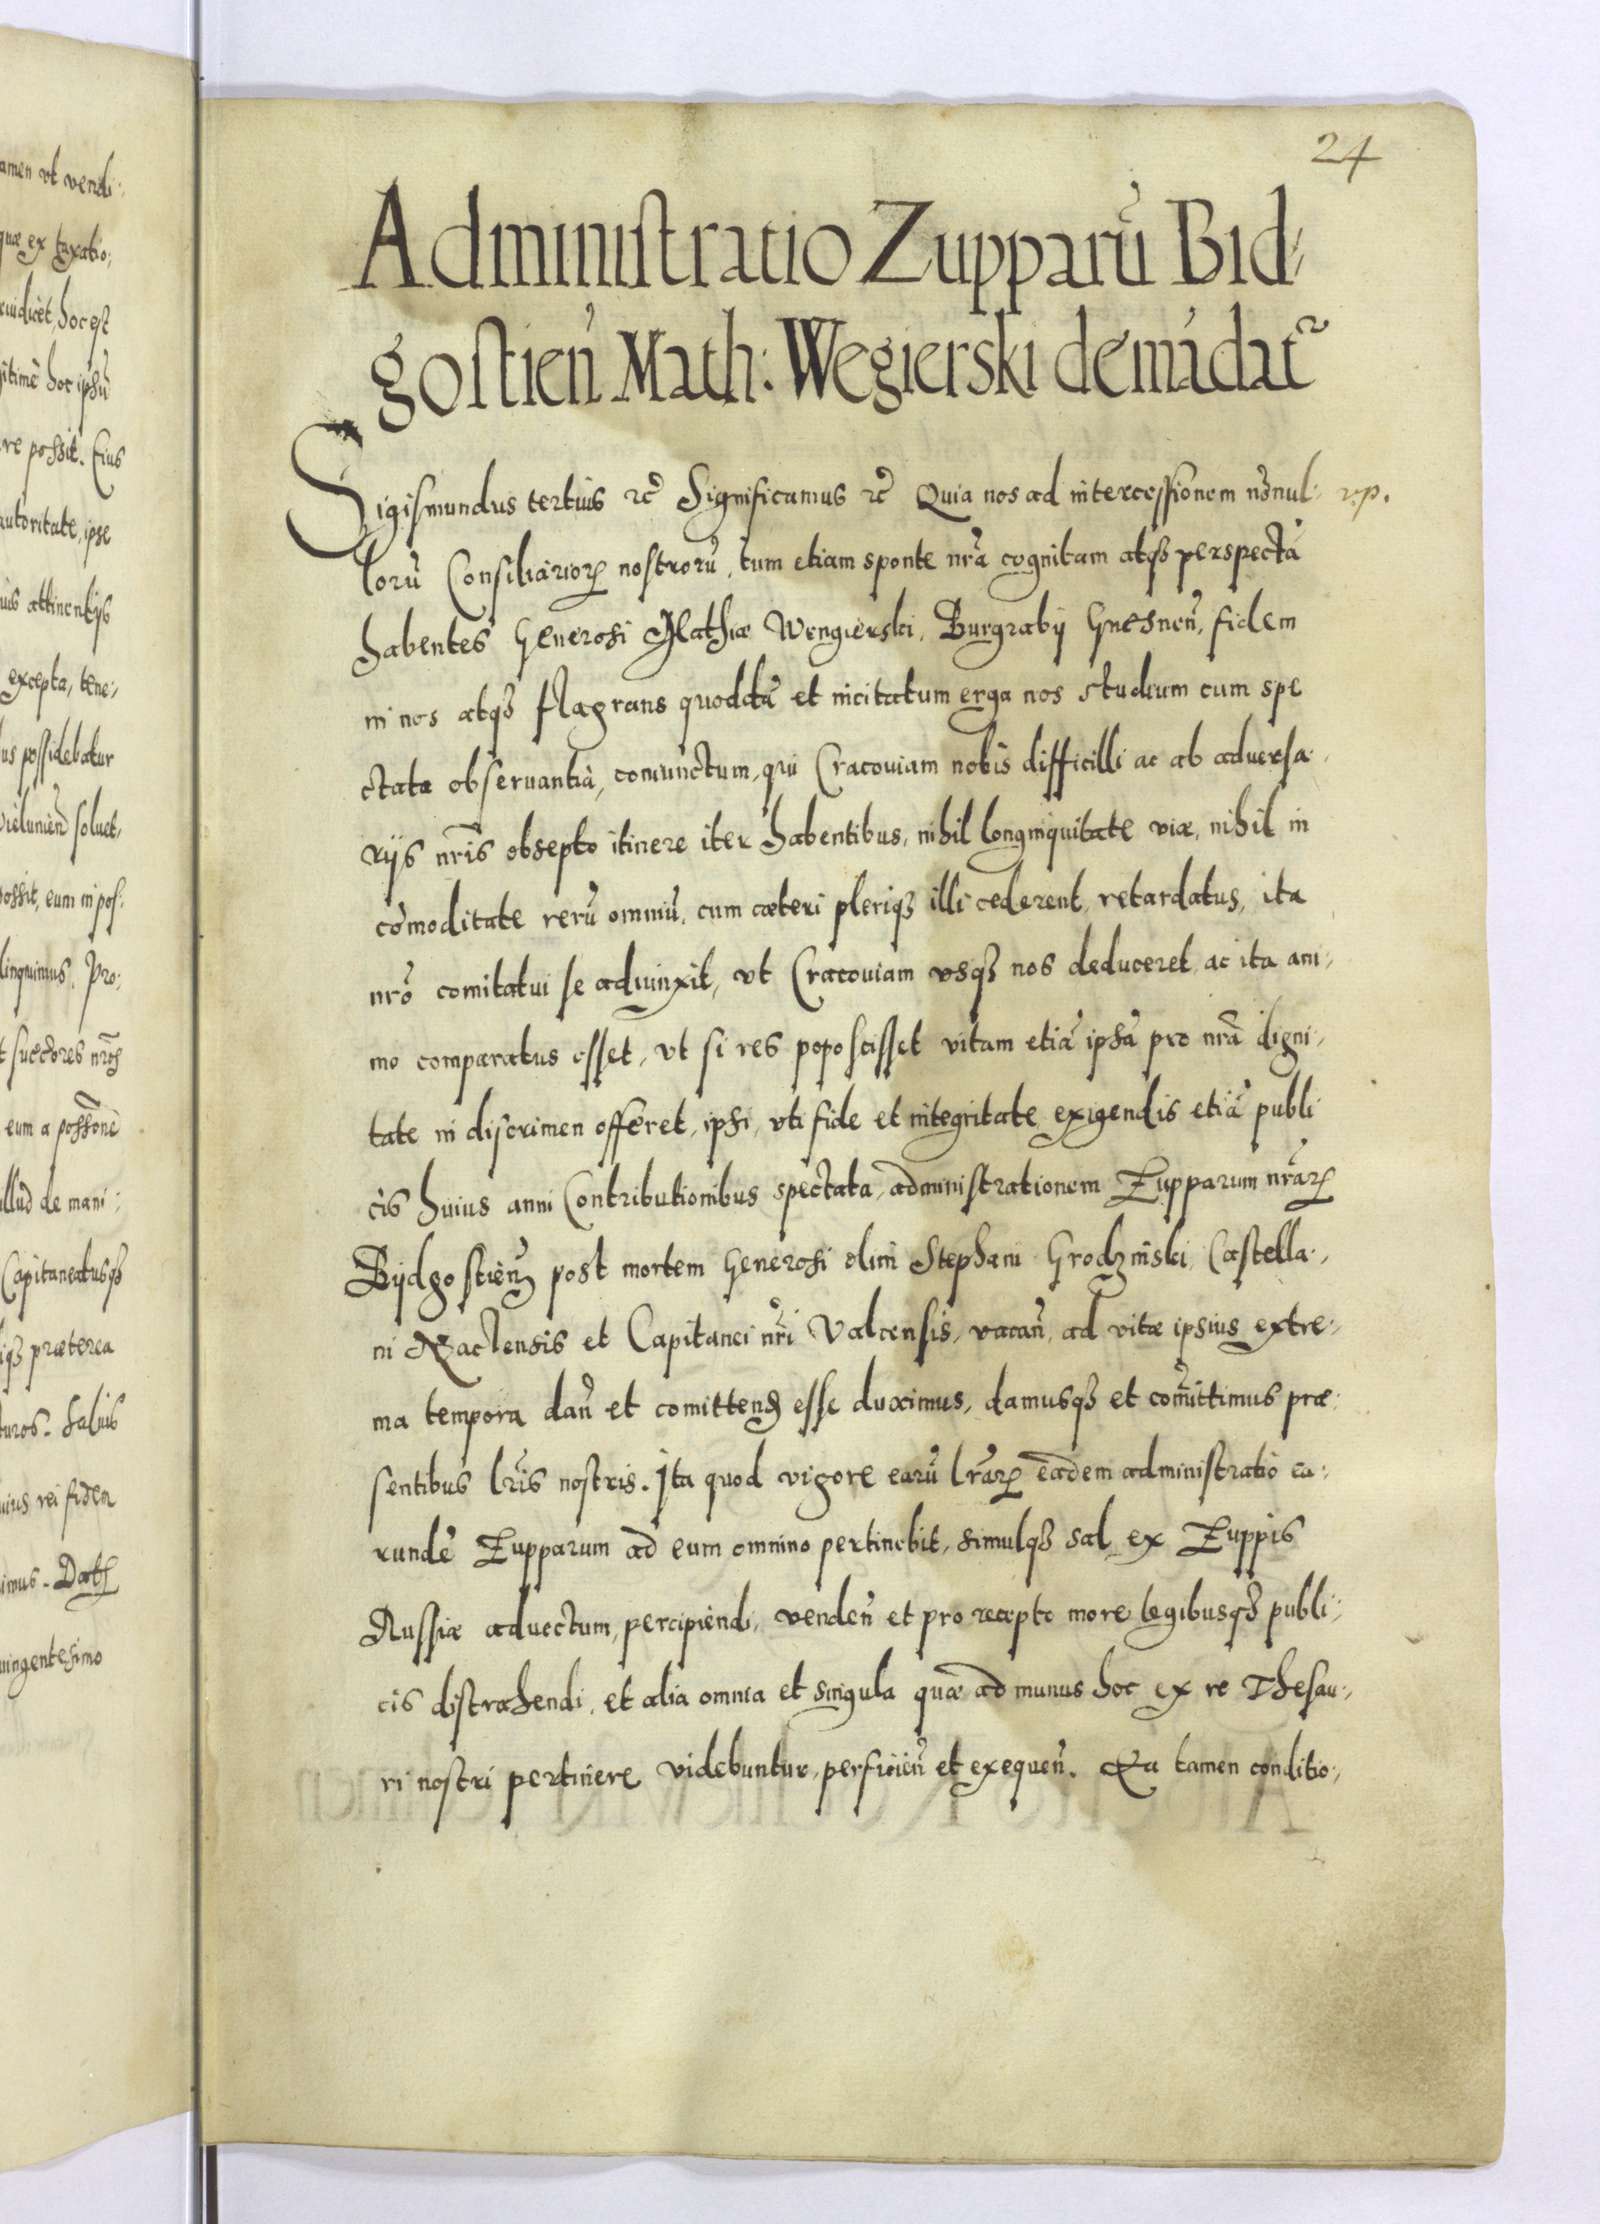 amen vt vendi:
quæ ex taxatio:
hoc est
hoc ipsũ
re possit. Eius
autoritate, ipse
attinentijs
excepta, tene:
possidebatur
soluet,
possit, eum in pos:
linquimus. Pro:
succores nr̃os
eum a possõne
illud de mani:
Capitaneatusqȝ
præterea
Saluis
rei fidem
Dat
uingentesimo
24
Administratio Zupparũ Bid:
gostien̄ Math: Wegierski demãdat̃
Sigismundus tertius ꝛc̃ Significamus ꝛc̃ Quia nos ad intercessionem nõnul: rp.
lorũ Consiliarioꝝ nostrorũ, tum etiam sponte nr̃a cognitam atqȝ perspectã
habentes Generosi Mathiæ Wengierski, Burgrabij Gnesnen̄, fidem
in nos atqȝ flagrans quoddã et incitatum erga nos studium cum spe
ctata obseruantià, coniunctum, qui Cracouiam nobis difficilli ac ab aduersa:
rijs nr̃is obsepto itinere iter habentibus, nihil longinquitate viæ, nihil in
cõmoditate rerũ omniũ, cum cæteri pleriqȝ illi cederent, retardatus, ita
nr̃o comitatui se adiunxit, vt Cracouiam vsqȝ nos deduceret, ac ita ani:
mo comparatus esset, vt si res poposcisset vitam etiã ipsã pro nr̃a digni:
tate in discrimen offeret, ipsi, vti fide et integritate exigendis etiã publi
cis huius anni Contributionibus spectata, administrationem Zupparum nr̃aꝝ
Bydgostien̄ post mortem Generosi olim Stephani Grodzinski Castella:
ni Naclensis et Capitanei nr̃i Valcensis, vacan̄, ad vitæ ipsius extre:
ma tempora dan̄ et comittend esse duximus, damusqȝ et com̃ittimus præ:
sentibus lr̃is nostris. Ita quod vigore earũ lr̃aꝝ eadem administratio ea:
rundẽ Zupparum ad eum omnino pertinebit, simulqȝ sal ex Zuppis
Russiæ aduectum, percipiendi, venden̄ et pro recepto more legibusqȝ publi:
cis distrahendi, et alia omnia et singula quæ ad munus hoc ex re Thesau:
ri nostri pertinere videbuntur, perficien̄ et exequen̄. Ea tamen conditio: